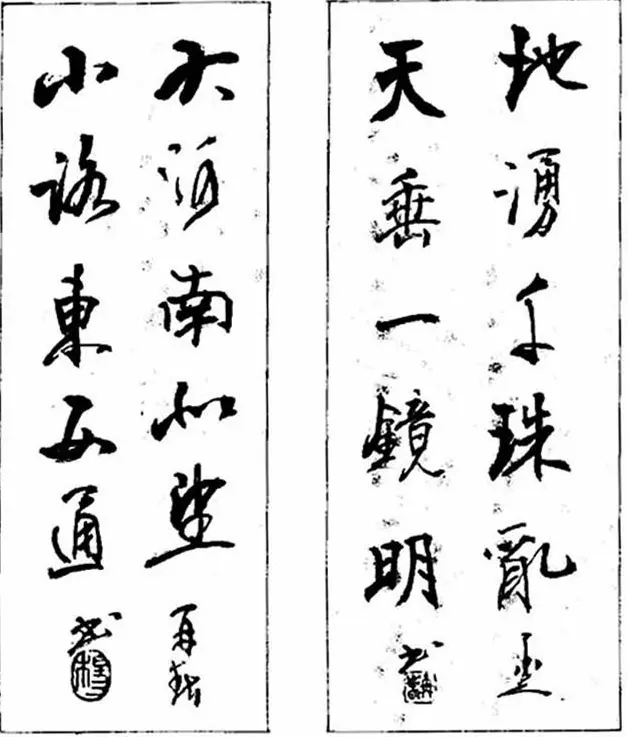 地湧千珠亂
天垂一鏡明 书
大河南北望 再
小路東西通 书